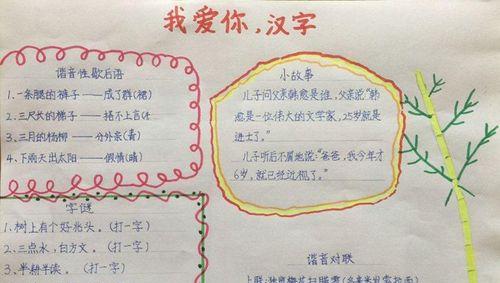 我爱你,汉字
谐音性歇后语
1、一条腿的裤子——成了群(裙)
2、三尺长的梯子——搭不上言(
3、三月的杨柳——分外亲(青)
4、下雨天出太阳——假情(晴)
小故事
儿子问父亲韩愈是谁,父亲说“韩
愈是一位伟大的文学家,25岁就是
进士了。”
儿子听后不屑地说:“爸爸,我今年才
6岁,就已经近视了。”
字谜
1、树上有个好兆头。(打一字)
2、三点水,白方文。(打一字)
3、半耕半读。(打一字)
谐音对联
上联:独览梅花扫腊雪